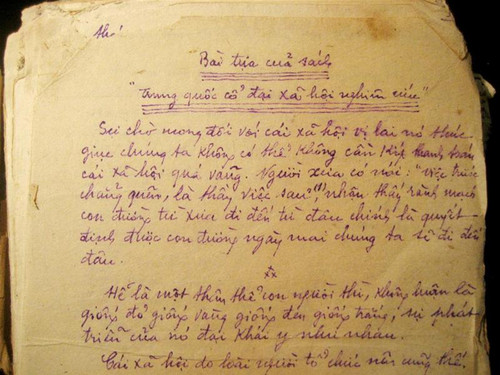 thơ
Bài tựa cuả sách
"Trung quốc cổ đại xã hội nghiên cứu"
Sự chờ mong đối với cái xã hội vị lai nó thúc
giục chúng ta không có thể không cần kíp thanh toán
cái xã hội quá vãng. Người xưa có nói: "việc trước
chẳng quên, là thầy việc sau" (1), nhận thấy rành mạch
con đường từ xưa đi đến từ đâu chính là quyết
định được con đường ngày mai chúng ta sẽ đi đến
đâu.
Hễ là một thân thể con người thì, không luận là
giống đỏ giống vàng giống đen giống trắng, sự phát
triển của nó đại khái y như nhau.
Cái xã hội do loài người tổ chức nên cũng thế.